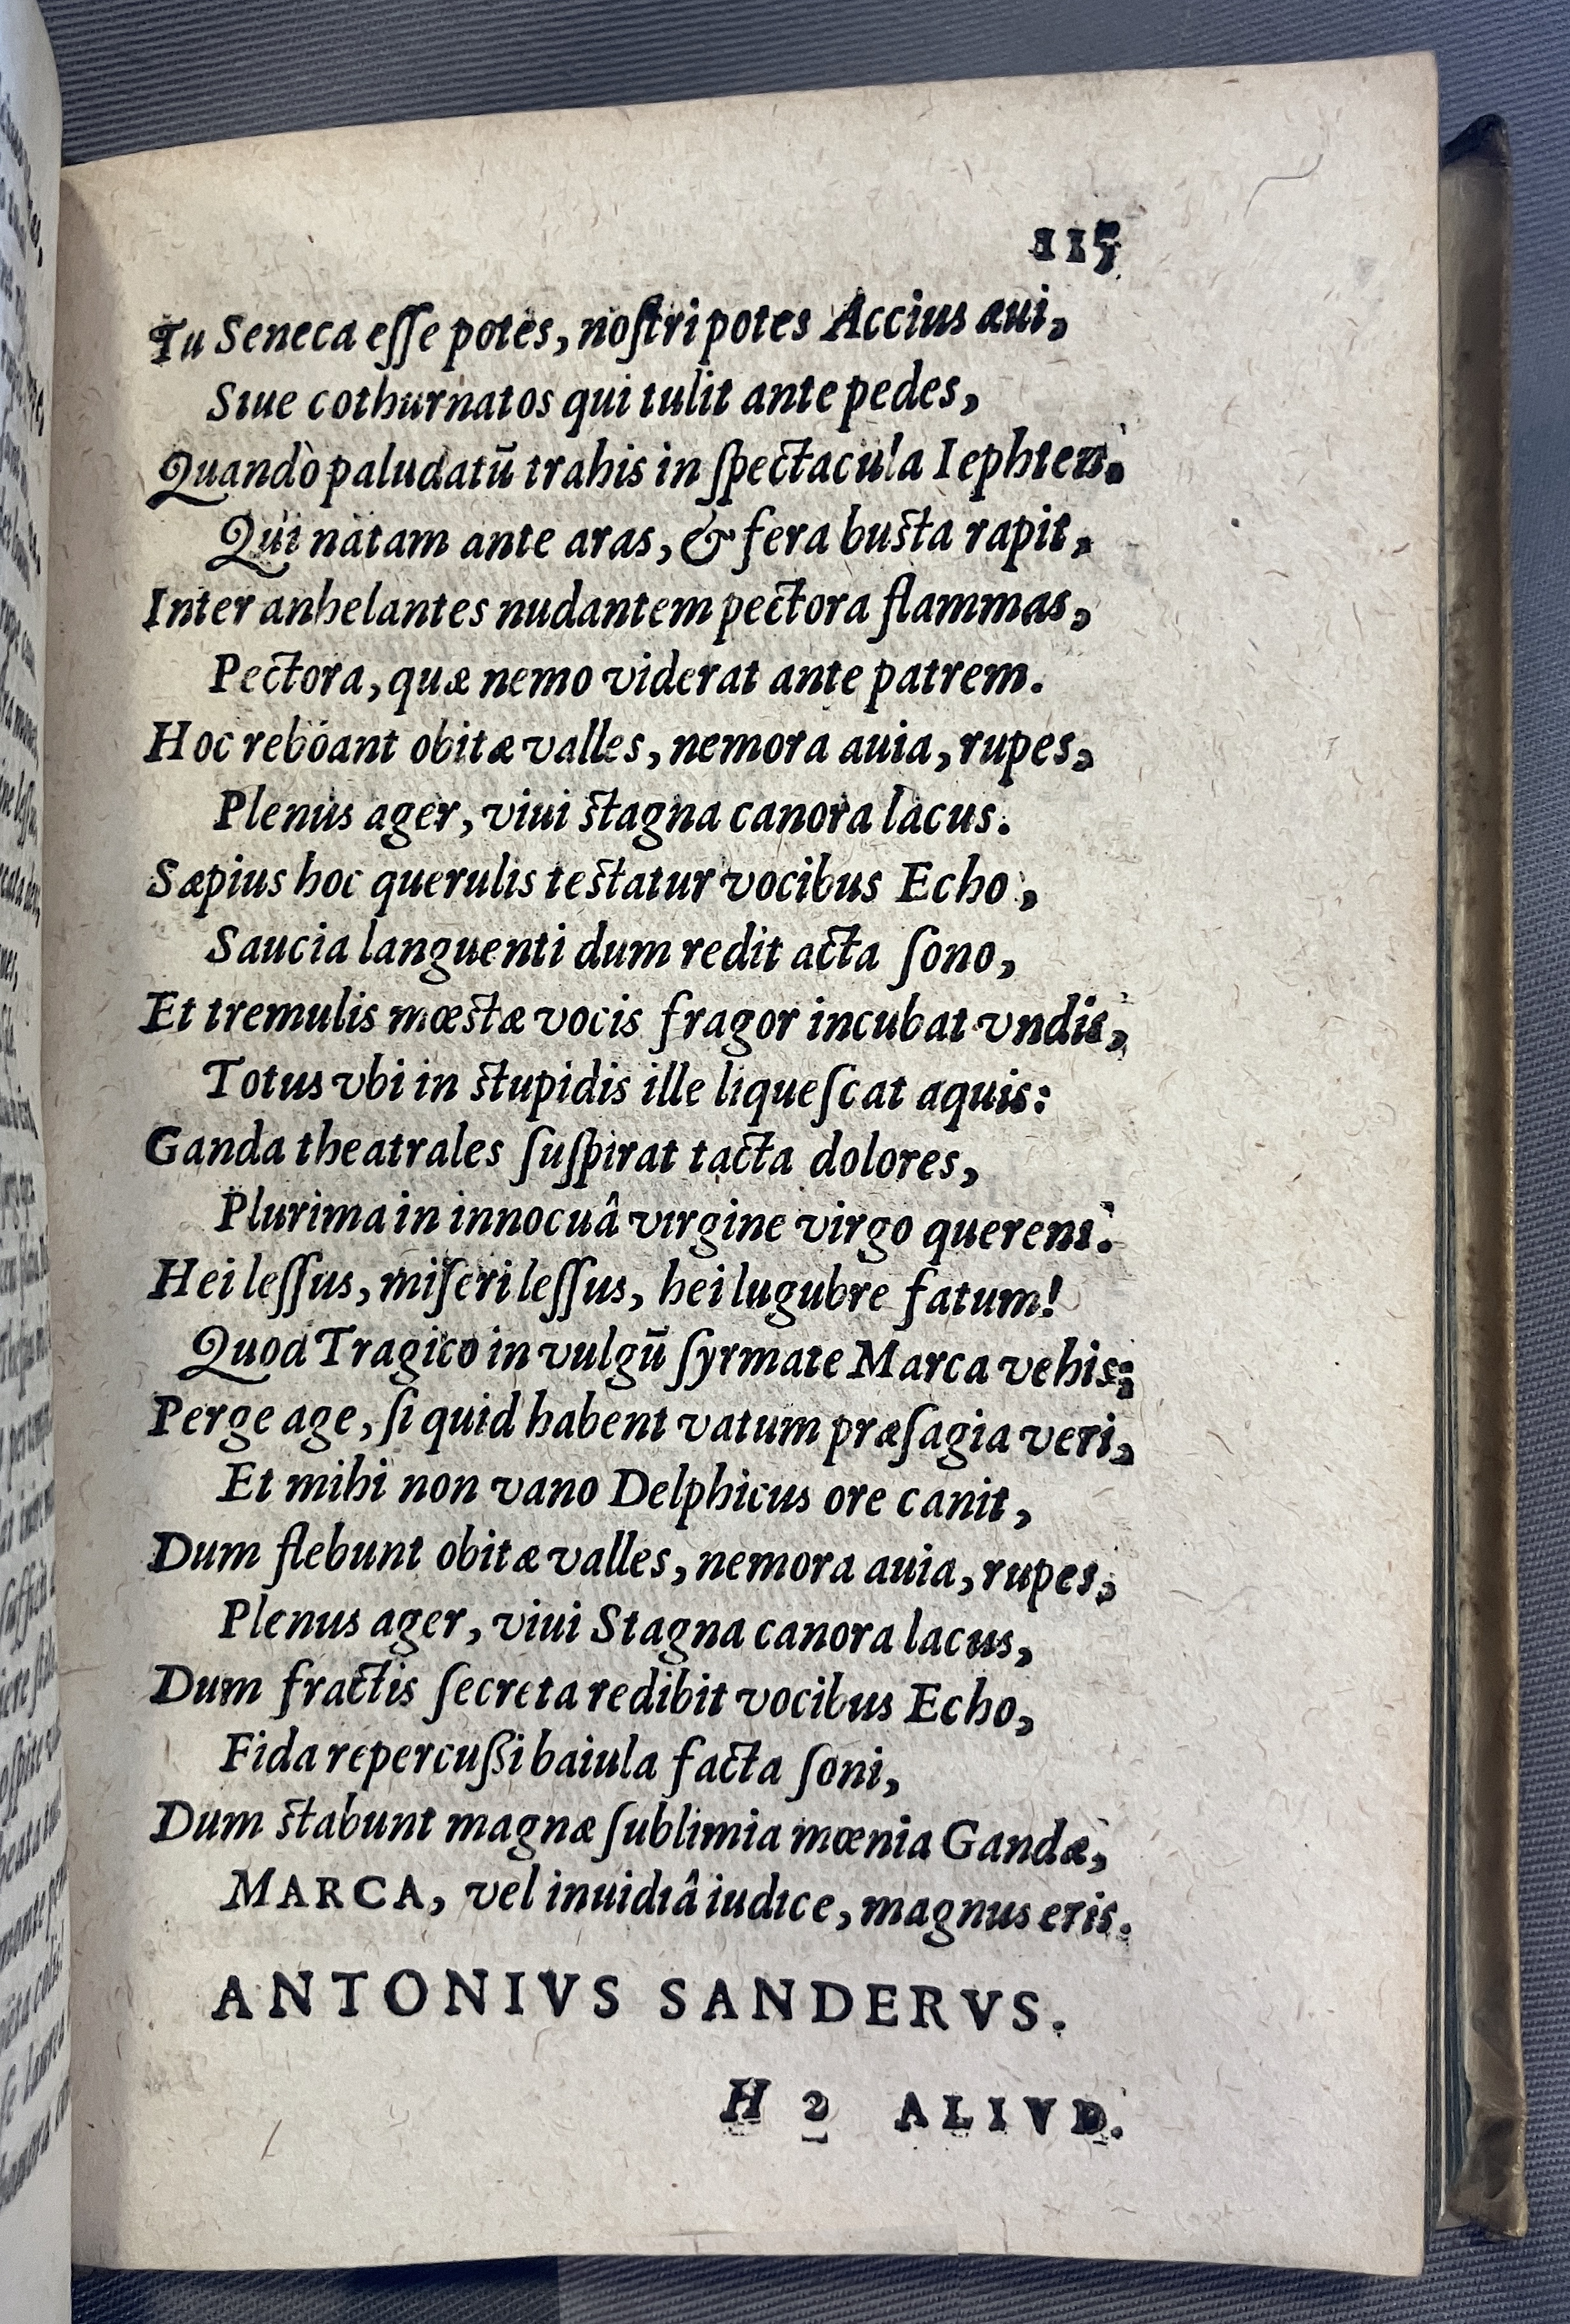 115
Tu Seneca eſſe potes, noſtri potes Accius aui,
Siue cothurnatos qui tulit ante pedes,
Quandò paludatū trahis in ſpectacula Iephten.
Qui natam ante aras, & fera buſta rapit,
Inter anhelantes nudantem pectora flammas,
Pectora, quæ nemo viderat ante patrem.
Hoc reboant obitæ valles, nemora auia, rupes,
Plenus ager, viui ſtagna canora lacus.
Sæpius hoc querulis teſtatur vocibus Echo,
Saucia languenti dum redit acta ſono,
Et tremulis mœſtæ vocis fragor incubat vndis,
Totus vbi in ſtupidis ille liqueſcat aquis:
Ganda theatrales ſuſpirat tacta dolores,
Plurima in innocuâ virgine virgo querens.
Hei leſſus, miſeri leſſus, hei lugubre fatum!
Quod Tragico in vulgū ſyrmate Marca vehis:
Perge age, ſi quid habent vatum præſagia veri,
Et mihi non vano Delphicus ore canit,
Dum flebunt obitæ valles, nemora auia, rupes,
Plenus ager, viui Stagna canora lacus,
Dum fractis ſecreta redibit vocibus Echo,
Fida repercuſſi baiula facta ſoni,
Dum ſtabunt magnæ ſublimia mœnia Gandæ,
MARCA, vel inuidiâ iudice, magnus eris.
ANTONIVS SANDERVS.
H 2 ALIVD.